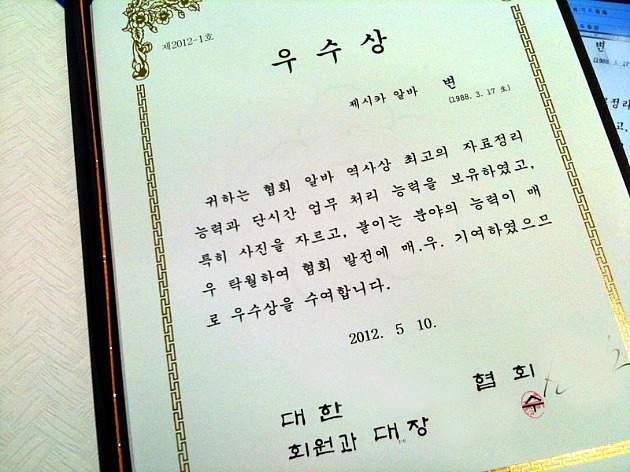 제2012-1호
우 수 상
제시카 알바 변
(1988. 3. 17 生)
귀하는 협회 알바 역사상 최고의 자료정리
능력과 단시간 업무 처리 능력을 보유하였고,
특히 사진을 자르고, 붙이는 분야의 능력이 매
우 탁월하여 협회 발전에 매.우. 기여하였으므
로 우수상을 수여합니다.
2012. 5 10.
대 한 협 회
회원과 대 장 수
변
(1988. 3. 17